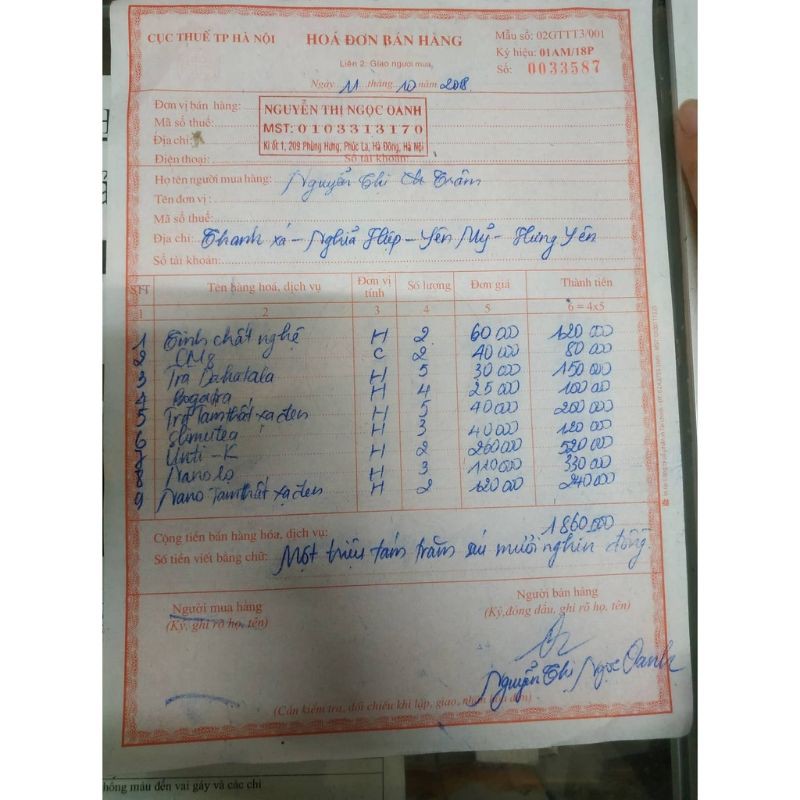 CỤC THUẾ TP HÀ NỘI
HOÁ ĐƠN BÁN HÀNG
Mẫu số: 02GTTT3/001
Ký hiệu: 01AM/18P
Liên 2: Giao người mua
Số: 0033587
Ngày 11 tháng 10 năm 2018
Đơn vị bán hàng: NGUYỄN THỊ NGỌC OANH
Mã số thuế: MST: 0103313170
Địa chỉ: Ki ốt 1, 209 Phùng Hưng, Phúc La, Hà Đông, Hà Nội
Điện thoại: Số tài khoản:
Họ tên người mua hàng: Nguyễn Thị Trâm
Tên đơn vị:
Mã số thuế:
Địa chỉ: Thanh xá - Nghĩa Hiệp - Yên Mỹ - Hưng Yên
Số tài khoản:
STT Tên hàng hoá, dịch vụ Đơn vị tính Số lượng Đơn giá Thành tiền
1 2 3 4 5 6 = 4x5
1 Tinh chất nghệ H 2 60 000 120 000
2 C 2 40 000 80 000
3 Trà H 5 30 000 150 000
4 Bogatra H 4 25 000 100 000
5 Trà Tam thất xạ đen H 5 40 000 200 000
6 Slimutea H 3 40 000 120 000
7 Unti - K H 2 260 000 520 000
8 Nano lọ H 3 110 000 330 000
9 Nano Tam thất xạ đen H 2 120 000 240 000
Cộng tiền bán hàng hóa, dịch vụ: 1 860 000
Số tiền viết bằng chữ: Một triệu tám trăm sáu mươi nghìn đồng.
Người mua hàng
(Ký, ghi rõ họ, tên)
Người bán hàng
(Ký, đóng dấu, ghi rõ họ, tên)
Nguyễn Thị Ngọc Oanh
(Cần kiểm tra, đối chiếu khi lập, giao, nhận hóa đơn)
hồng máu đến vai gáy và các chi